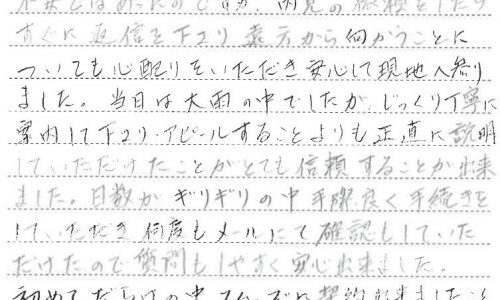 不安ではあったのですが、内見の依頼をしたら
すぐに返信を下さり遠方から向かうことに
ついても心配りをいただき安心して現地へ参り
ました。当日は大雨の中でしたが、じっくり丁寧に
案内して下さり、アピールすることよりも正直に説明
していただけたことがとても信頼することが出来
ました。日数がギリギリの中手際良く手続きを
していただき何度もメールにて確認もしていた
だけたので質問もしやすく安心出来ました。
初めてだらけの中、スムーズに契約出来ましたこと